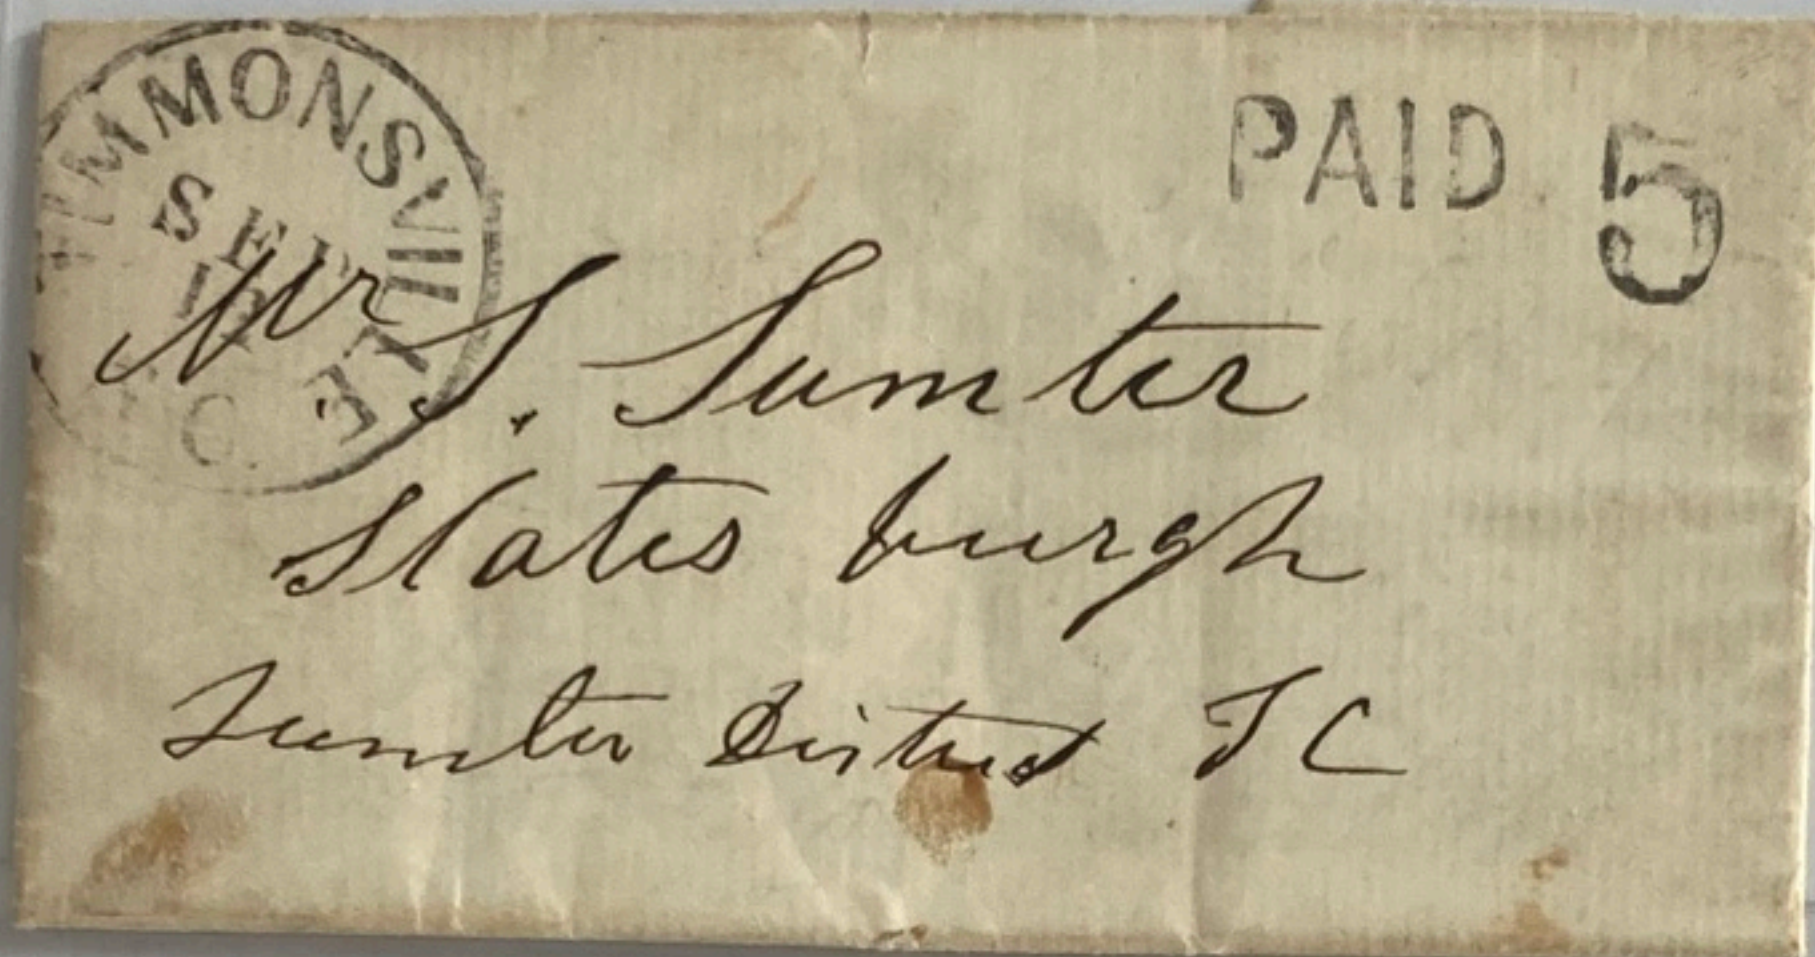 TIMMONSVILLE
SEP
C
PAID 5
Mr S. Sumter
States burgh
Sumter District S C